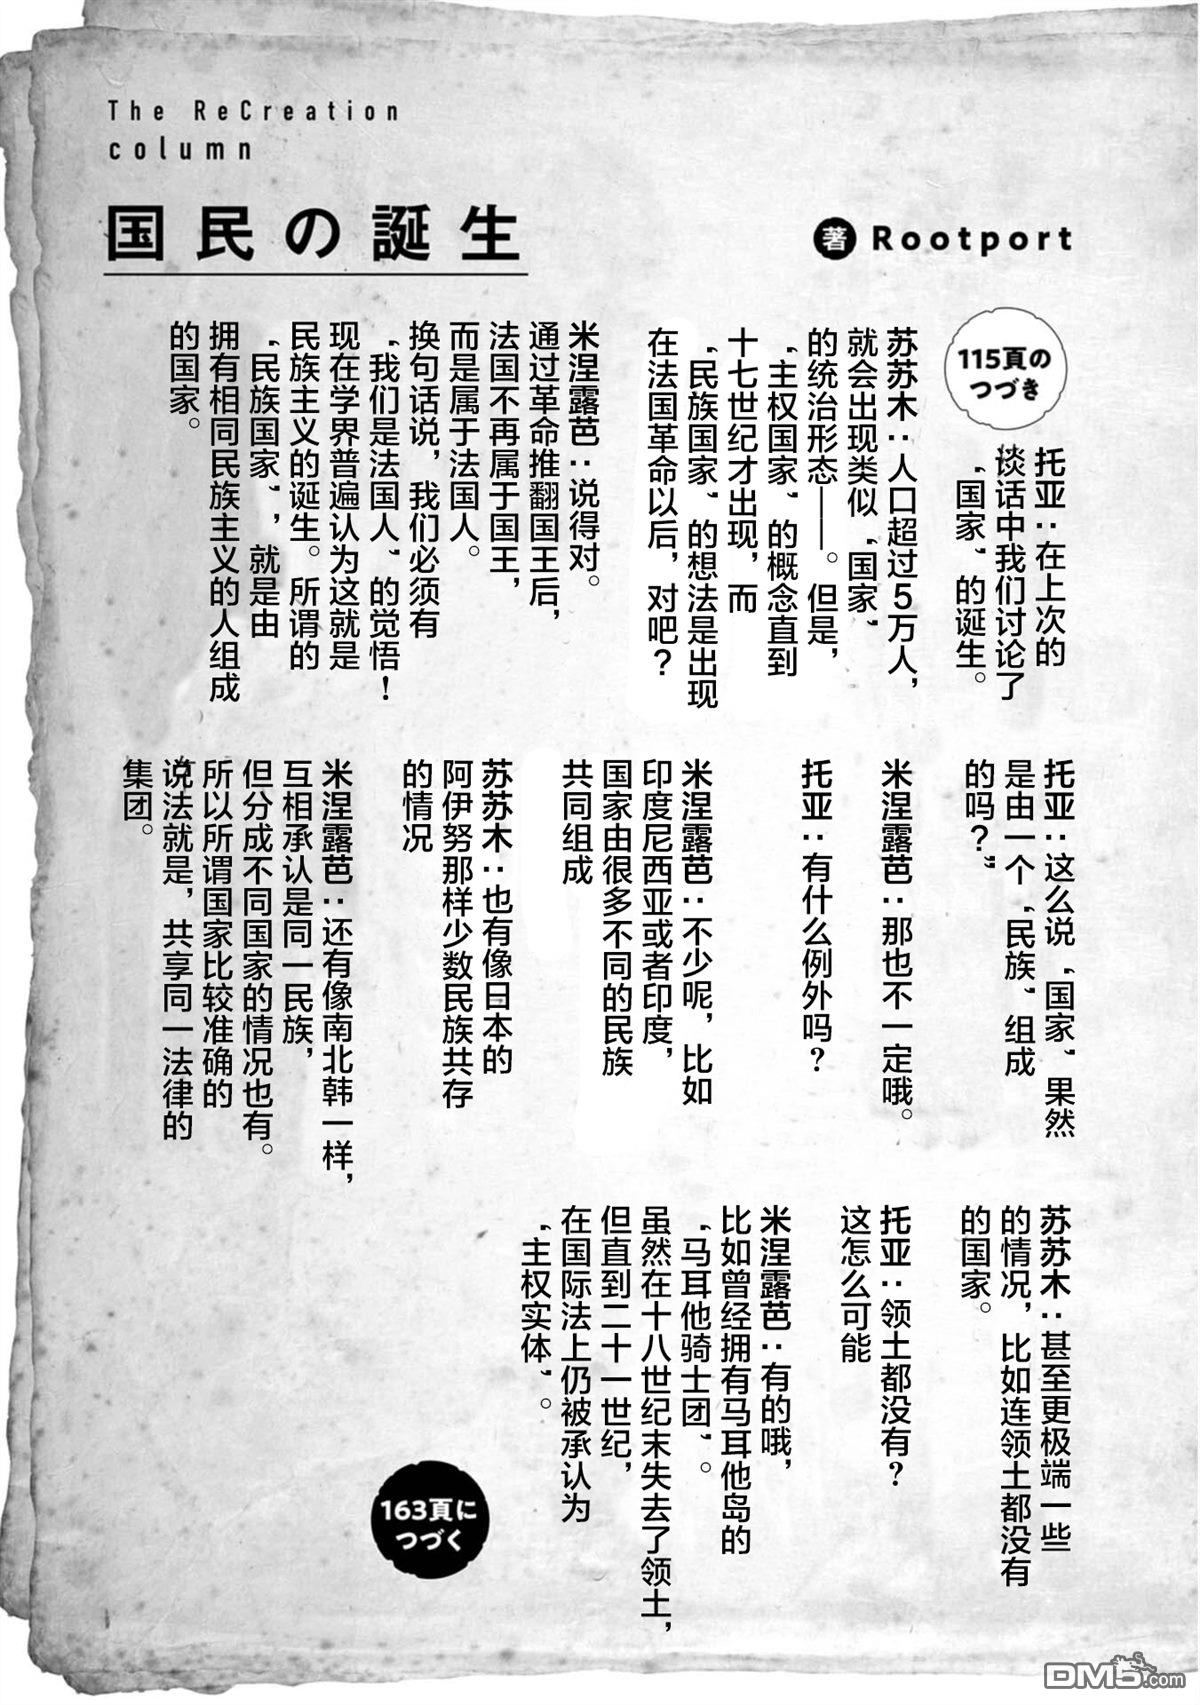 The ReCreation
column
国民の誕生
著 Rootport
115頁の
つづき
托亚：在上次的
谈话中我们讨论了
“国家”的诞生。
苏苏木：人口超过5万人，
就会出现类似“国家”
的统治形态——。但是，
“主权国家”的概念直到
十七世纪才出现，而
“民族国家”的想法是出现
在法国革命以后，对吧？
米涅露芭：说得对。
通过革命推翻国王后，
法国不再属于国王，
而是属于法国人。
换句话说，我们必须有
“我们是法国人”的觉悟！
现在学界普遍认为这就是
民族主义的诞生。所谓的
“民族国家”，就是由
拥有相同民族主义的人组成
的国家。
托亚：这么说“国家”果然
是由一个“民族”组成
的吗？”
米涅露芭：那也不一定哦。
托亚：有什么例外吗？
米涅露芭：不少呢，比如
印度尼西亚或者印度，
国家由很多不同的民族
共同组成
苏苏木：也有像日本的
阿伊努那样少数民族共存
的情况
米涅露芭：还有像南北韩一样，
互相承认是同一民族，
但分成不同国家的情况也有。
所以所谓国家比较准确的
说法就是，共享同一法律的
集团。
苏苏木：甚至更极端一些
的情况，比如连领土都没有
的国家。
托亚：领土都没有？
这怎么可能
米涅露芭：有的哦，
比如曾经拥有马耳他岛的
“马耳他骑士团”。
虽然在十八世纪末失去了领土，
但直到二十一世纪，
在国际法上仍被承认为
“主权实体”。
163頁に
つづく
DM5.com